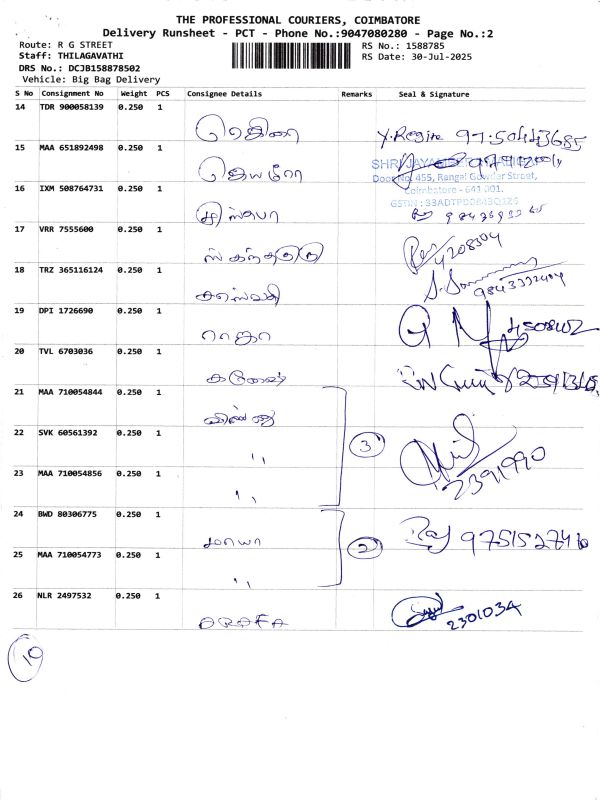 THE PROFESSIONAL COURIERS, COIMBATORE
Delivery Runsheet - PCT - Phone No.:9047080280 - Page No.:2
Route: R G STREET
RS No.: 1588785
Staff: THILAGAVATHI
RS Date: 30-Jul-2025
DRS No.: DCJB158878502
Vehicle: Big Bag Delivery
S No Consignment No Weight PCS Consignee Details Remarks Seal & Signature
14 TDR 900058139 0.250 1
ரெஜினா Y.Regina 97-50443685
15 MAA 651892498 0.250 1
SHRI
Door No. 455, Rangai Gowder Street,
16 IXM 508764731 0.250 1
Coimbatore - 641 001.
GSTIN : 33ADTPD0843Q1Z6
17 VRR 7555600 0.250 1
4208304
18 TRZ 365116124 0.250 1
சரஸ்வதி
19 DPI 1726690 0.250 1
ராஜா
20 TVL 6703036 0.250 1
கணேஷ்
21 MAA 710054844 0.250 1
விஷ்ணு
22 SVK 60561392 0.250 1
" 3
23 MAA 710054856 0.250 1
" 2391990
24 BWD 80306775 0.250 1
மாயா Raj 9751527416
25 MAA 710054773 0.250 1
" 2
26 NLR 2497532 0.250 1
ARAFA 2301034
19